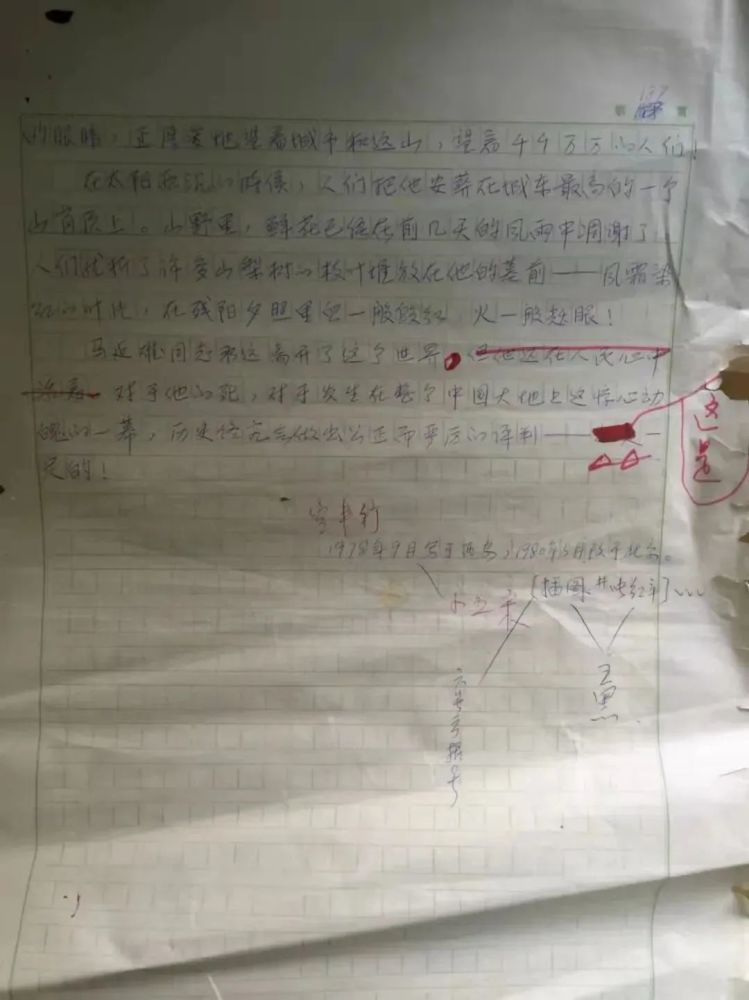 第 137 页
的眼睛，还厚爱地望着城市和远山，望着千千万万的人们！
在太阳西沉的时候，人们把他安葬在城东最高的一个
山岗顶上。山野里，鲜花已经在前几天的风雨中凋谢了，
人们就折了许多山梨树的枝叶堆放在他的墓前——风霜染
红的叶片，在残阳夕照里血一般殷红，火一般耀眼！
马延雄同志永远离开了这个世界。但他还在人民心中
活着。对于他的死，对于发生在整个中国大地上这惊心动
魄的一幕，历史将会做出公正而严厉的评判——一
定的！
这是
空半行
1978年9月写于西安，1980年5月改于北京。
小五宋
[插图、井 红军]
六号
五黑